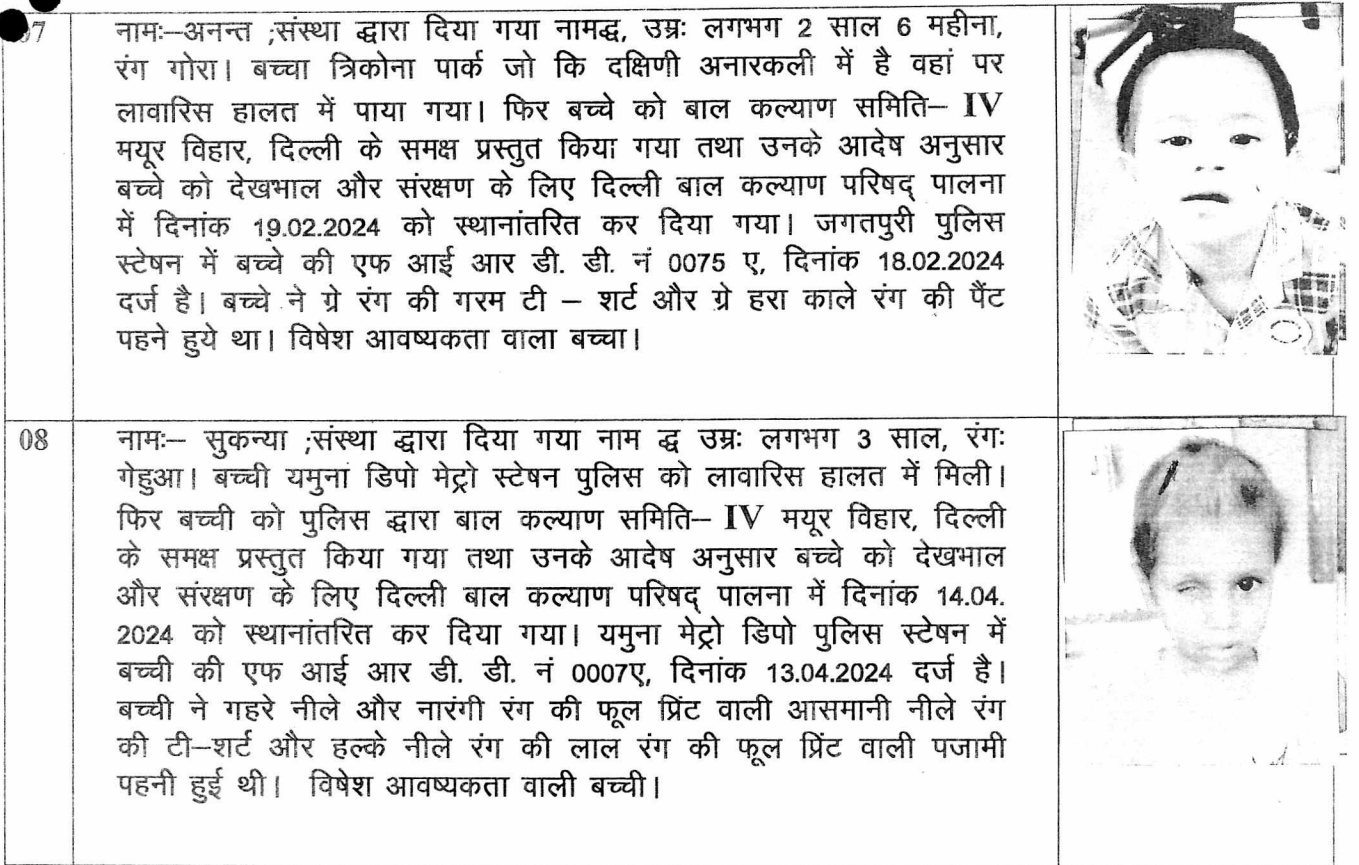 07
नामः–अनन्त ;संस्था द्धारा दिया गया नामद्ध, उम्रः लगभग 2 साल 6 महीना,
रंग गोरा। बच्चा त्रिकोना पार्क जो कि दक्षिणी अनारकली में है वहां पर
लावारिस हालत में पाया गया। फिर बच्चे को बाल कल्याण समिति– IV
मयूर विहार, दिल्ली के समक्ष प्रस्तुत किया गया तथा उनके आदेष अनुसार
बच्चे को देखभाल और संरक्षण के लिए दिल्ली बाल कल्याण परिषद् पालना
में दिनांक 19.02.2024 को स्थानांतरित कर दिया गया। जगतपुरी पुलिस
स्टेषन में बच्चे की एफ आई आर डी. डी. नं 0075 ए, दिनांक 18.02.2024
दर्ज है। बच्चे ने ग्रे रंग की गरम टी – शर्ट और ग्रे हरा काले रंग की पैंट
पहने हुये था। विषेश आवष्यकता वाला बच्चा।
08
नामः– सुकन्या ;संस्था द्धारा दिया गया नाम द्ध उम्रः लगभग 3 साल, रंगः
गेहुआ। बच्ची यमुना डिपो मेट्रो स्टेषन पुलिस को लावारिस हालत में मिली।
फिर बच्ची को पुलिस द्धारा बाल कल्याण समिति– IV मयूर विहार, दिल्ली
के समक्ष प्रस्तुत किया गया तथा उनके आदेष अनुसार बच्चे को देखभाल
और संरक्षण के लिए दिल्ली बाल कल्याण परिषद् पालना में दिनांक 14.04.
2024 को स्थानांतरित कर दिया गया। यमुना मेट्रो डिपो पुलिस स्टेषन में
बच्ची की एफ आई आर डी. डी. नं 0007ए, दिनांक 13.04.2024 दर्ज है।
बच्ची ने गहरे नीले और नारंगी रंग की फूल प्रिंट वाली आसमानी नीले रंग
की टी–शर्ट और हल्के नीले रंग की लाल रंग की फूल प्रिंट वाली पजामी
पहनी हुई थी। विषेश आवष्यकता वाली बच्ची।